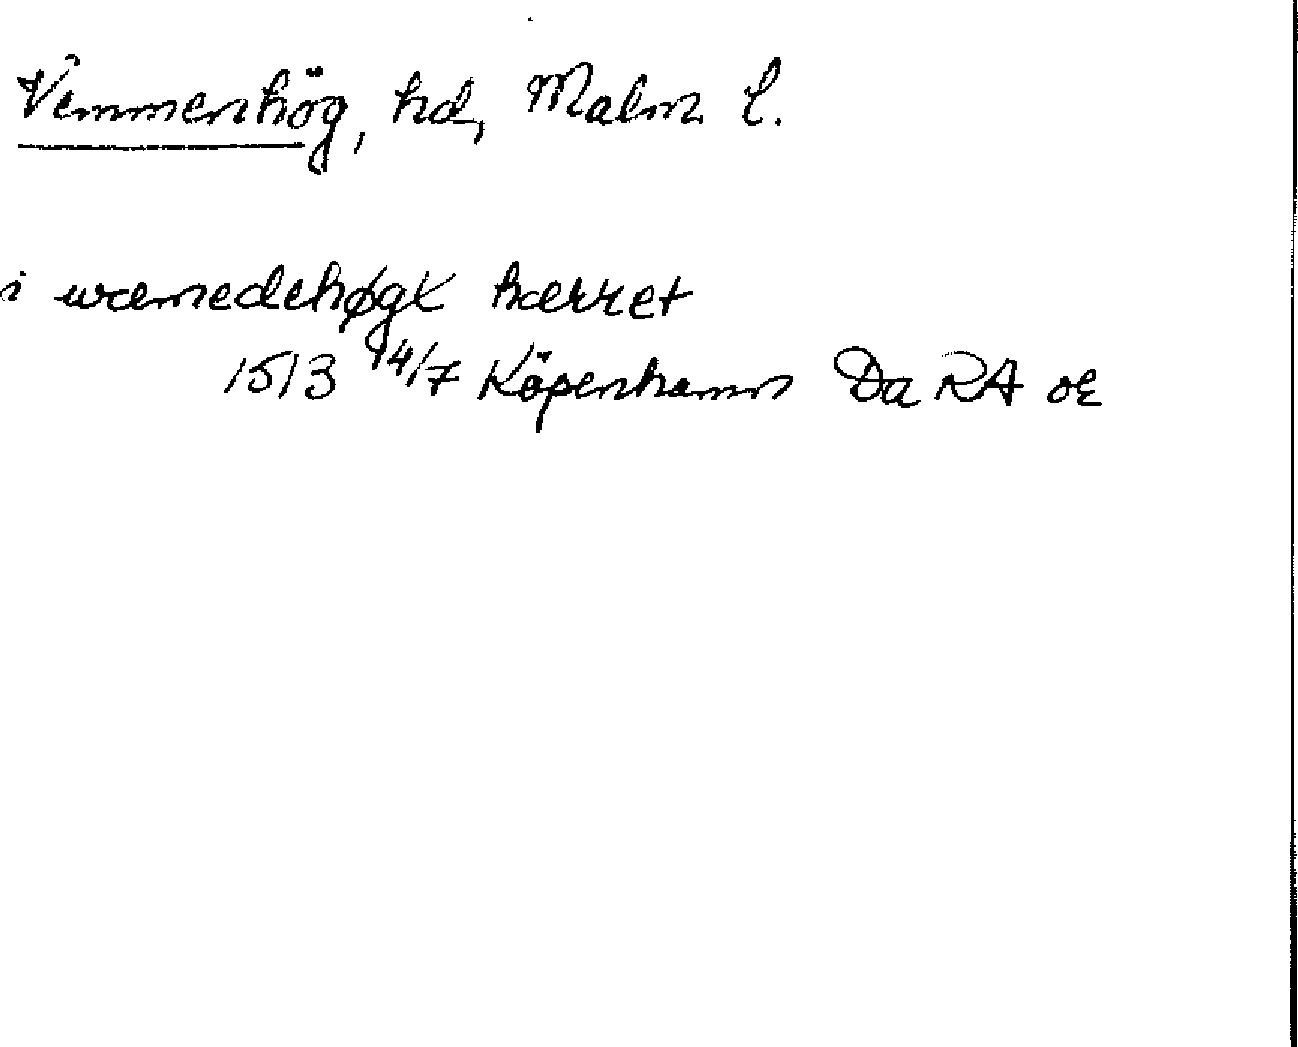 Vemmenhög, hd, Malm. l.
i wæmedehøgx hærret
1513 14/7 Köpenhamn DaRA oε